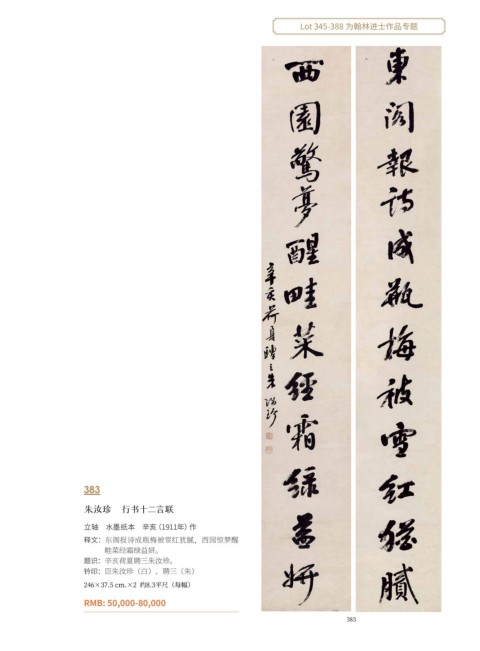 Lot 345-388 为翰林进士作品专题
東閣報詩成瓶梅被雪紅猶膩
西園驚夢醒畦菜經霜綠益妍
辛亥荷夏聘三朱汝珍
383
朱汝珍 行书十二言联
立轴 水墨纸本 辛亥（1911年）作
释文：东阁报诗成瓶梅被雪红犹腻，西园惊梦醒
畦菜经霜绿益妍。
题识：辛亥荷夏聘三朱汝珍。
钤印：臣朱汝珍（白）、聘三（朱）
246×37.5 cm.×2 约8.3平尺（每幅）
RMB: 50,000-80,000
383